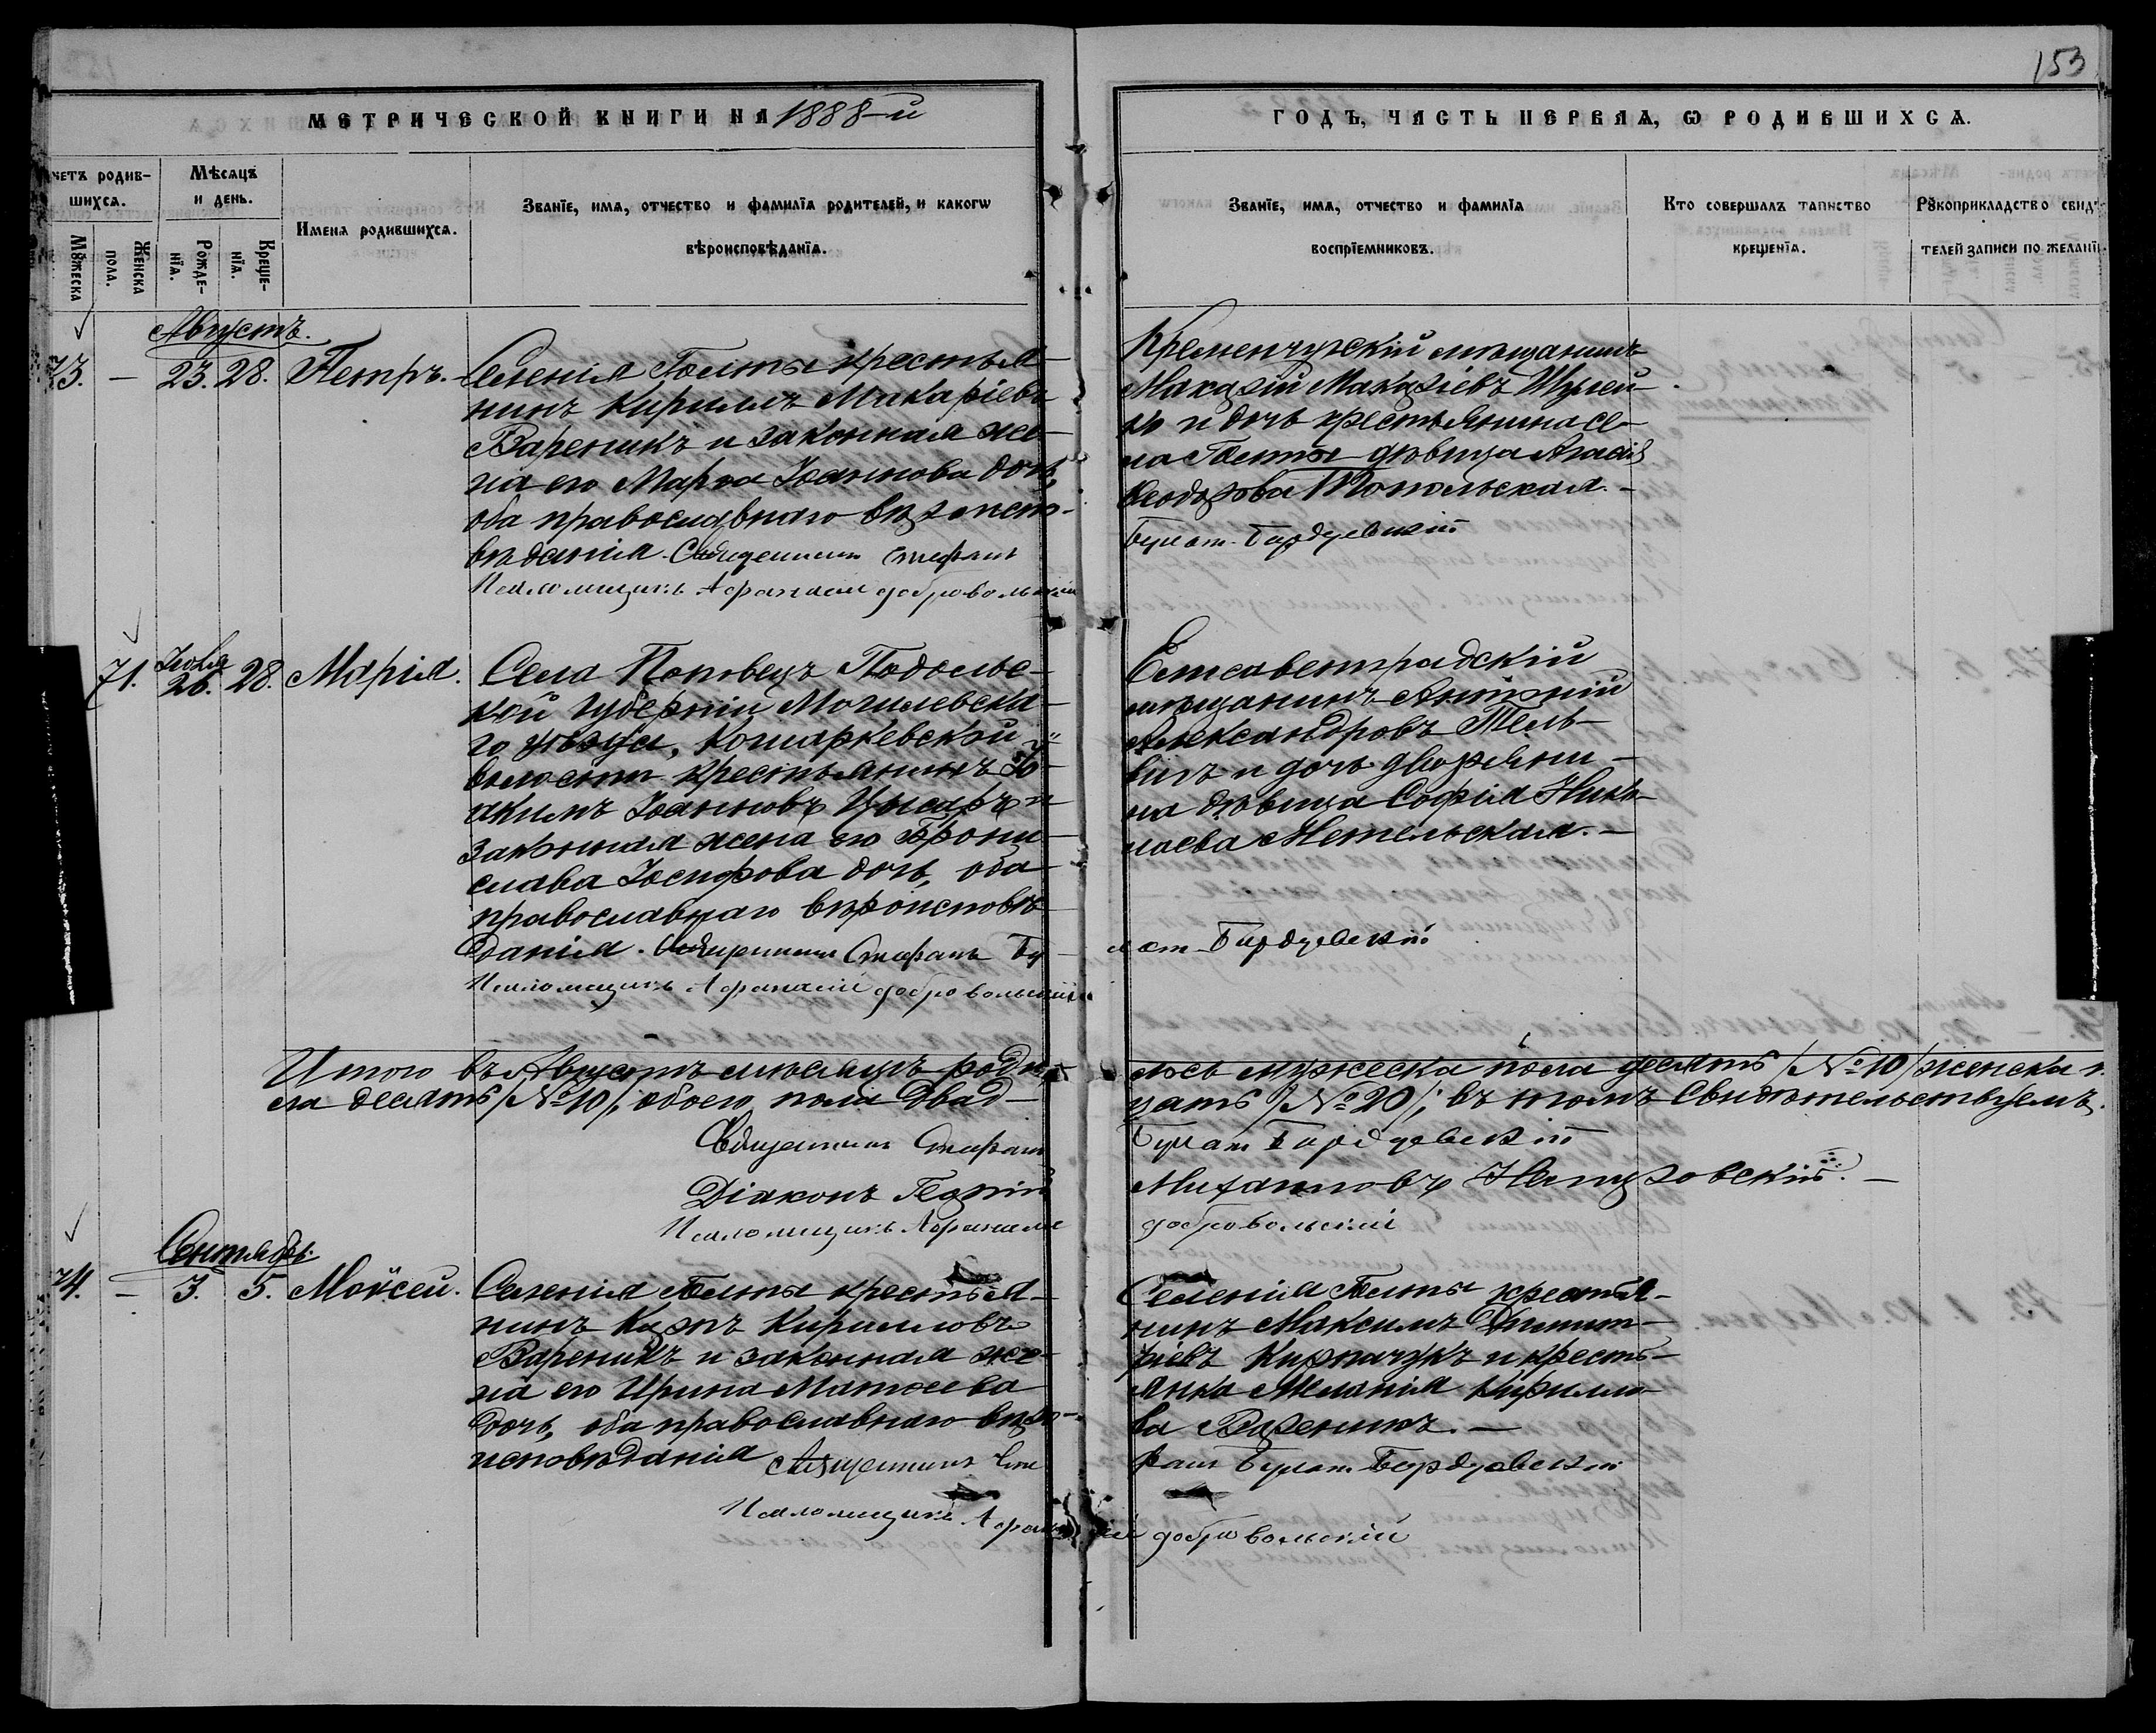 153
МЕТРИЧЕСКОЙ КНИГИ НА 1888-й
ГОДЪ, ЧАСТЬ ПЕРВАЯ, Ѡ РОДИВШИХСЯ.
четъ родив-
шихся.
Мѣсяцъ
и день.
Имена родившихся.
Званїе, имя, отчество и фамилїя родителей, и какогѡ
вѣроисповѣданїя.
Мꙋжеска
Женска
пола.
Рожде-
нїя.
Креще-
нїя.
Званїе, имя, отчество и фамилїя
воспрїемниковъ.
Кто совершалъ таинство
крещенїя.
Рꙋкоприкладство свидѣ-
телей записи по желанїю
Августъ.
73. — 23. 28. Петръ.
Селенія Голты крестья-
нинъ Кириллъ Макаріевъ
Вареникъ и законная же-
на его Марѳа Іоаннова дочь,
оба православнаго вѣроиспо-
вѣданія. Священникъ Стефанъ
Псаломщикъ Афанасій Добровольскій
Кременчугскій мѣщанинъ
Макарій Макаріевъ
и дочь крестьянина се-
ла Голты дѣвица
Ѳеодорова Топольская.
Булат-Бардуевскій
71. Іюля 26. 28. Марія.
Села Поповецъ Подольс-
кой губерніи Могилевска-
го уѣзда,
волости крестьянинъ Іо-
акимъ Іоанновъ и
законная жена его Брони-
слава Іосифова дочь, оба
православнаго вѣроисповѣ-
данія. Священникъ Стефанъ Бу-
лат-Бардуевскій
Псаломщикъ Афанасій Добровольскій
Елисаветградскій
мѣщанинъ Антоній
Александровъ Тель-
и дочь дворяни-
на дѣвица Софія Нико-
лаева Метельская.
Итого въ Августѣ мѣсяцѣ роди-
лось мужеска пола десять /№ 10/ женска п.
ла десять /№ 10/, обоего пола двад-
цать /№ 20/; въ томъ свидѣтельствуемъ.
Священникъ Стефанъ
Булат Бардуевскій
Діаконъ Георгій
Михаиловъ
Псаломщикъ Афанасій
Добровольскій
Сентябрь.
74. — 3. 5. Моѵсей.
Селенія Голты крестья-
нинъ Карпъ Кирилловъ
Вареникъ и законная же-
на его Ирина Матѳеева
дочь, оба православнаго вѣро-
исповѣданія Священникъ Сте-
фанъ Булат Бардуевскій
Псаломщикъ Афанасій Добровольскій
Селенія Голты крестья-
нинъ Максимъ Димит-
ріевъ Кирпачукъ и кресть-
янка Меланія Кирилло-
ва Вареникъ.